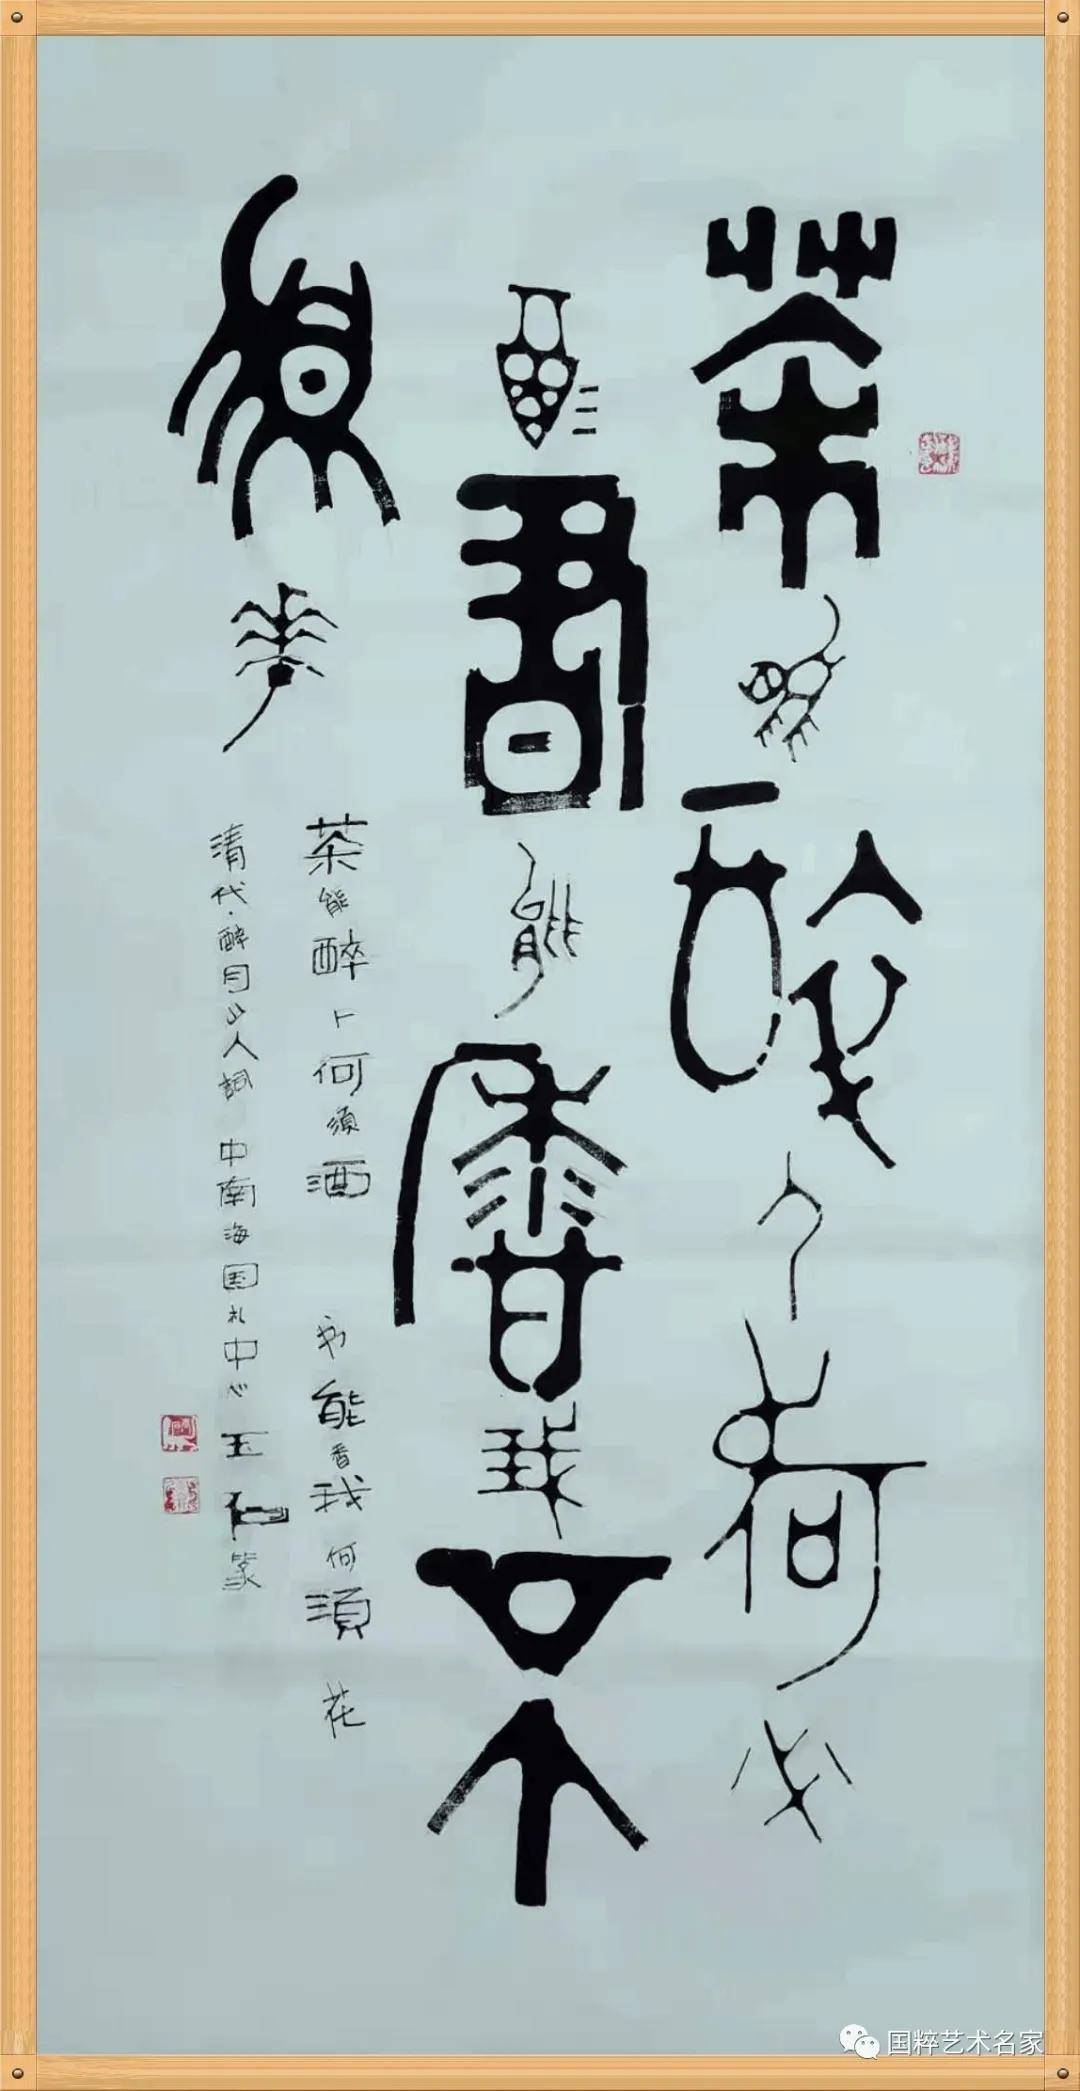 茶能醉人何必
酒書能香我不
須華
茶能醉人何須酒 书能香我何須花
清代·醉月山人詞 中南海国礼中心 玉仁篆
国粹艺术名家